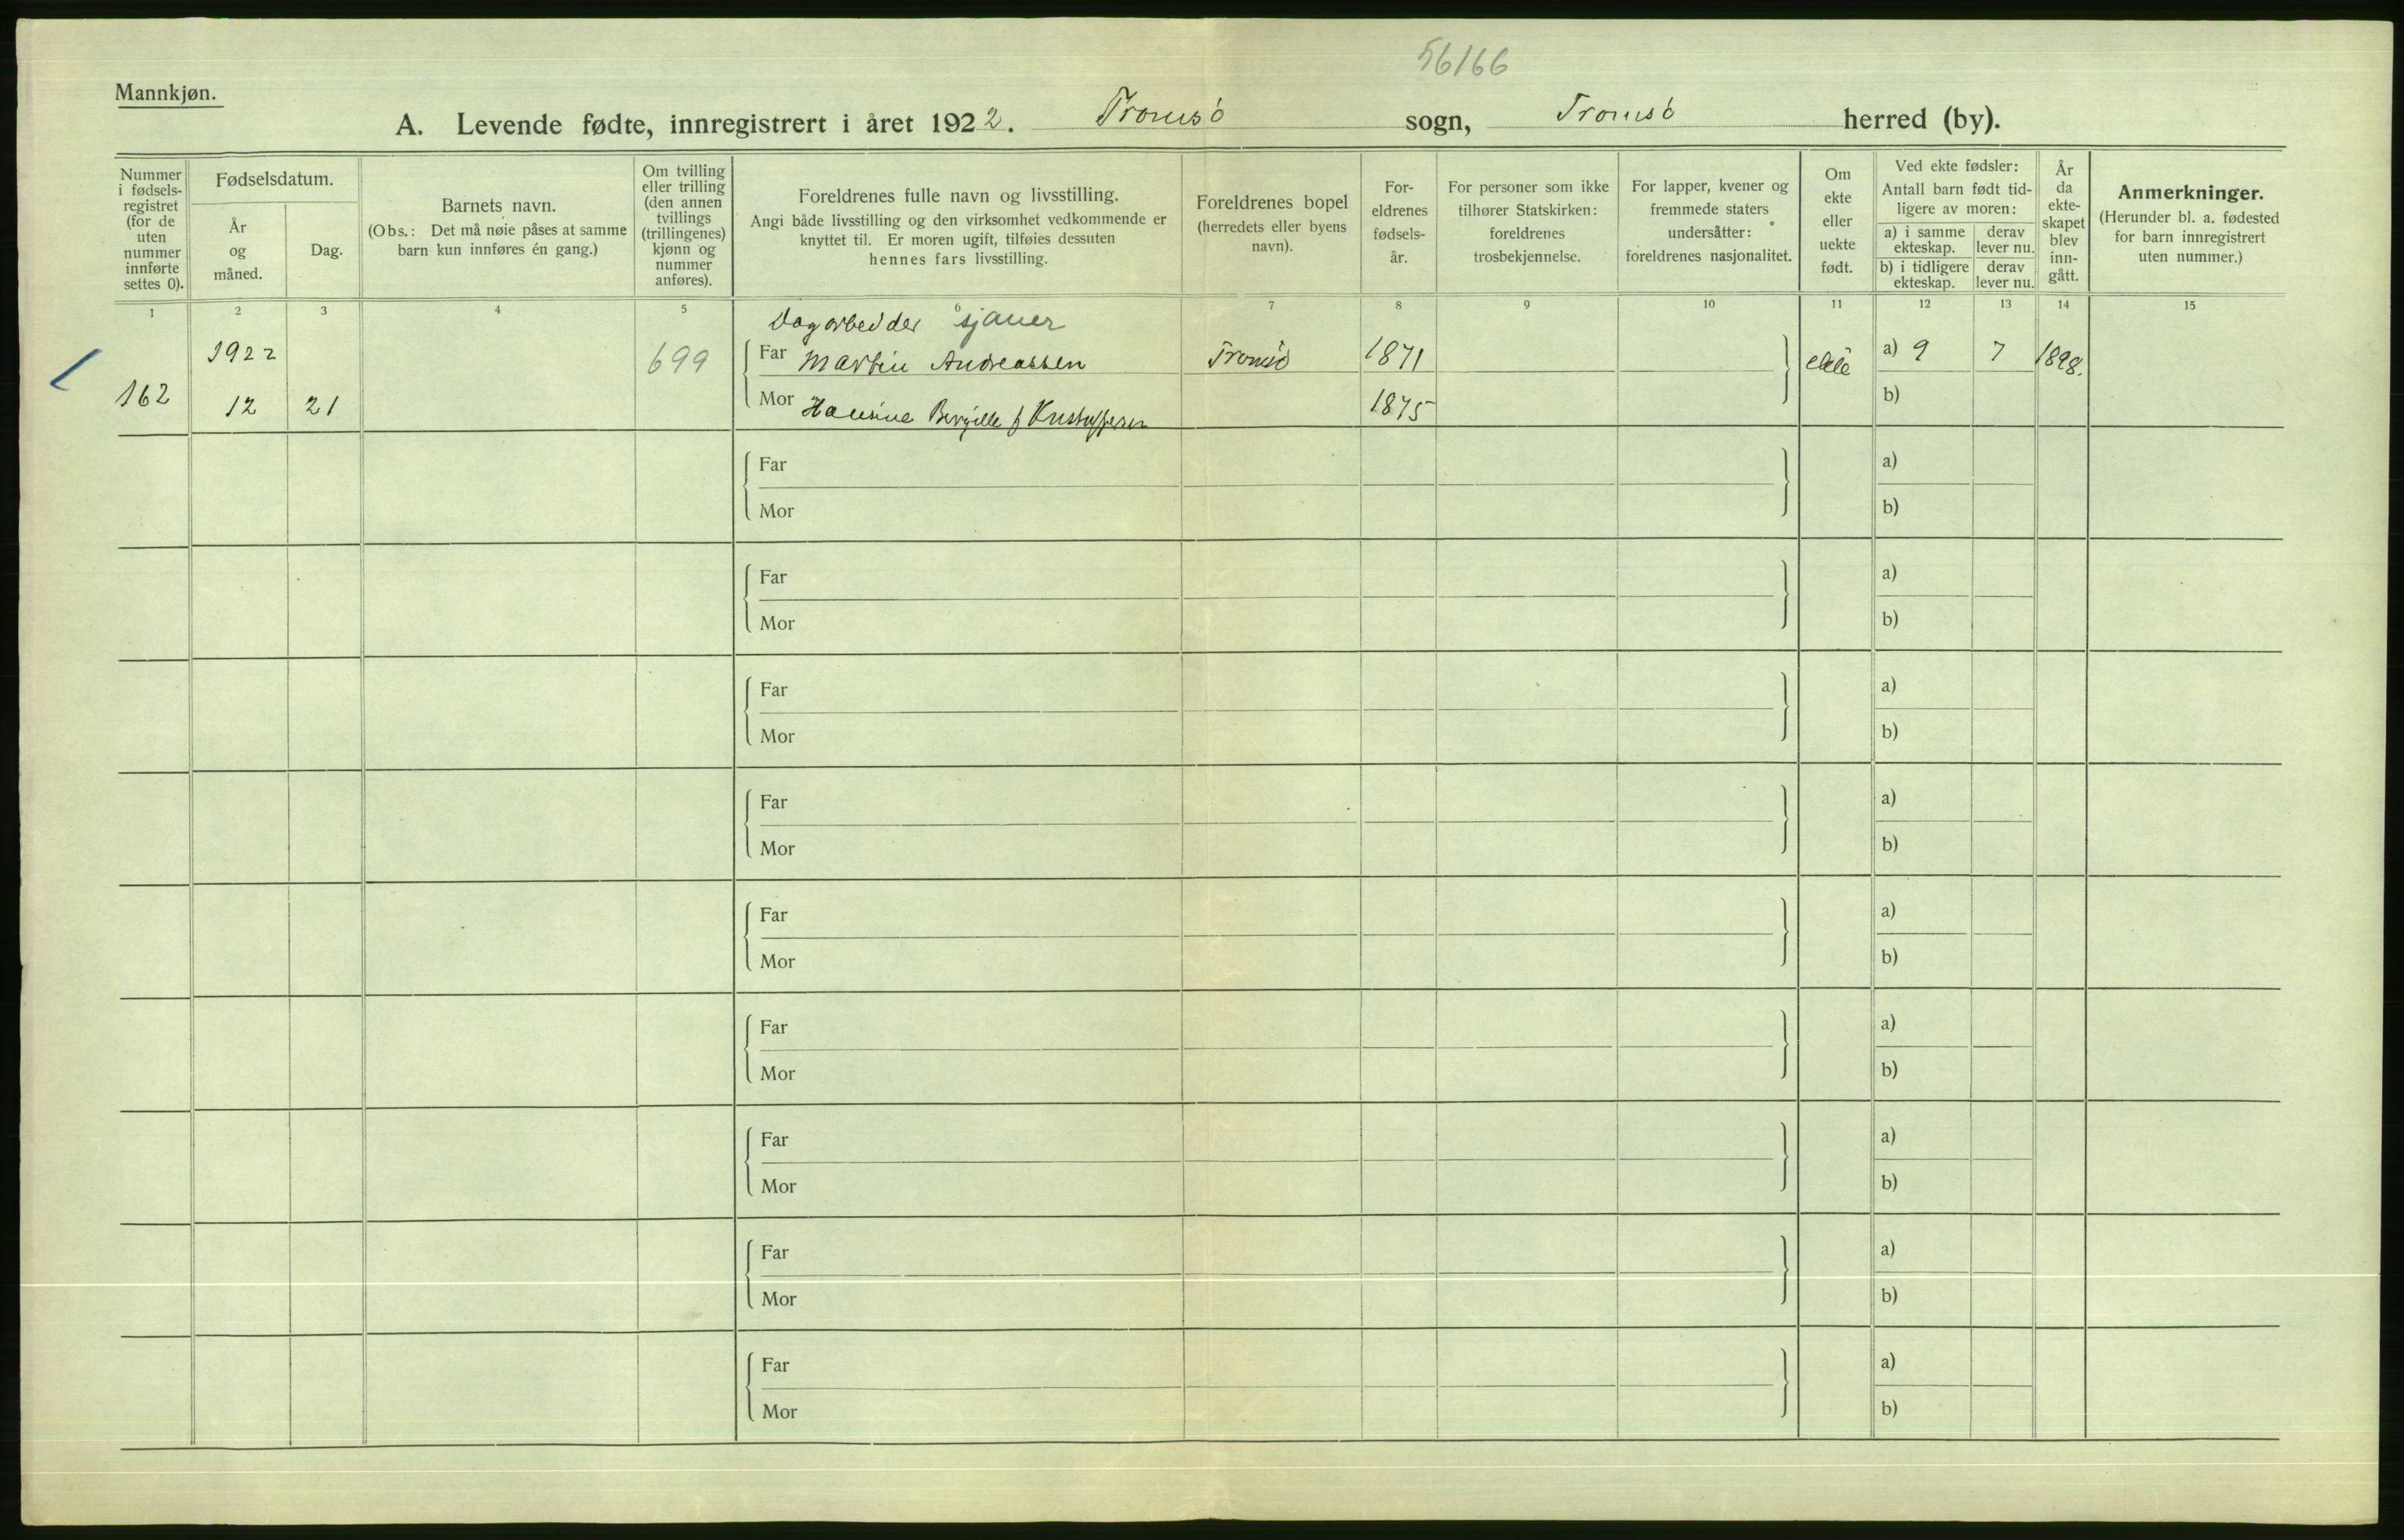 56166
Mannkjøn.
A. Levende fødte, innregistrert i året 1922. Tromsö sogn, Tromsö herred (by).
Nummer
i fødsels-
registret
(for de
uten
nummer
innførte
settes 0).
Fødselsdatum.
År
og
måned.
Dag.
Barnets navn.
(Obs.: Det må nøie påses at samme
barn kun innføres én gang.)
Om tvilling
eller trilling
(den annen
tvillings
(trillingenes)
kjønn og
nummer
anføres).
Foreldrenes fulle navn og livsstilling.
Angi både livsstilling og den virksomhet vedkommende er
knyttet til. Er moren ugift, tilføies dessuten
hennes fars livsstilling.
Foreldrenes bopel
(herredets eller byens
navn).
For-
eldrenes
fødsels-
år.
For personer som ikke
tilhører Statskirken:
foreldrenes
trosbekjennelse.
For lapper, kvener og
fremmede staters
undersåtter:
foreldrenes nasjonalitet.
Om
ekte
eller
uekte
født.
Ved ekte fødsler:
Antall barn født tid-
ligere av moren:
a) i samme
ekteskap.
derav
lever nu.
b) i tidligere
ekteskap.
derav
lever nu.
År
da
ekte-
skapet
blev
inn-
gått.
Anmerkninger.
(Herunder bl. a. fødested
for barn innregistrert
uten nummer.)
1 2 3 4 5 6 7 8 9 10 11 12 13 14 15
Dagarbeider sjauer
1922 699 Far Martin Andreassen Tromsö 1871 ekte a) 9 7 1898.
162 12 21 Mor Hansine f Kristoffersen 1875 b)
Far a)
Mor b)
Far a)
Mor b)
Far a)
Mor b)
Far a)
Mor b)
Far a)
Mor b)
Far a)
Mor b)
Far a)
Mor b)
Far a)
Mor b)
Far a)
Mor b)